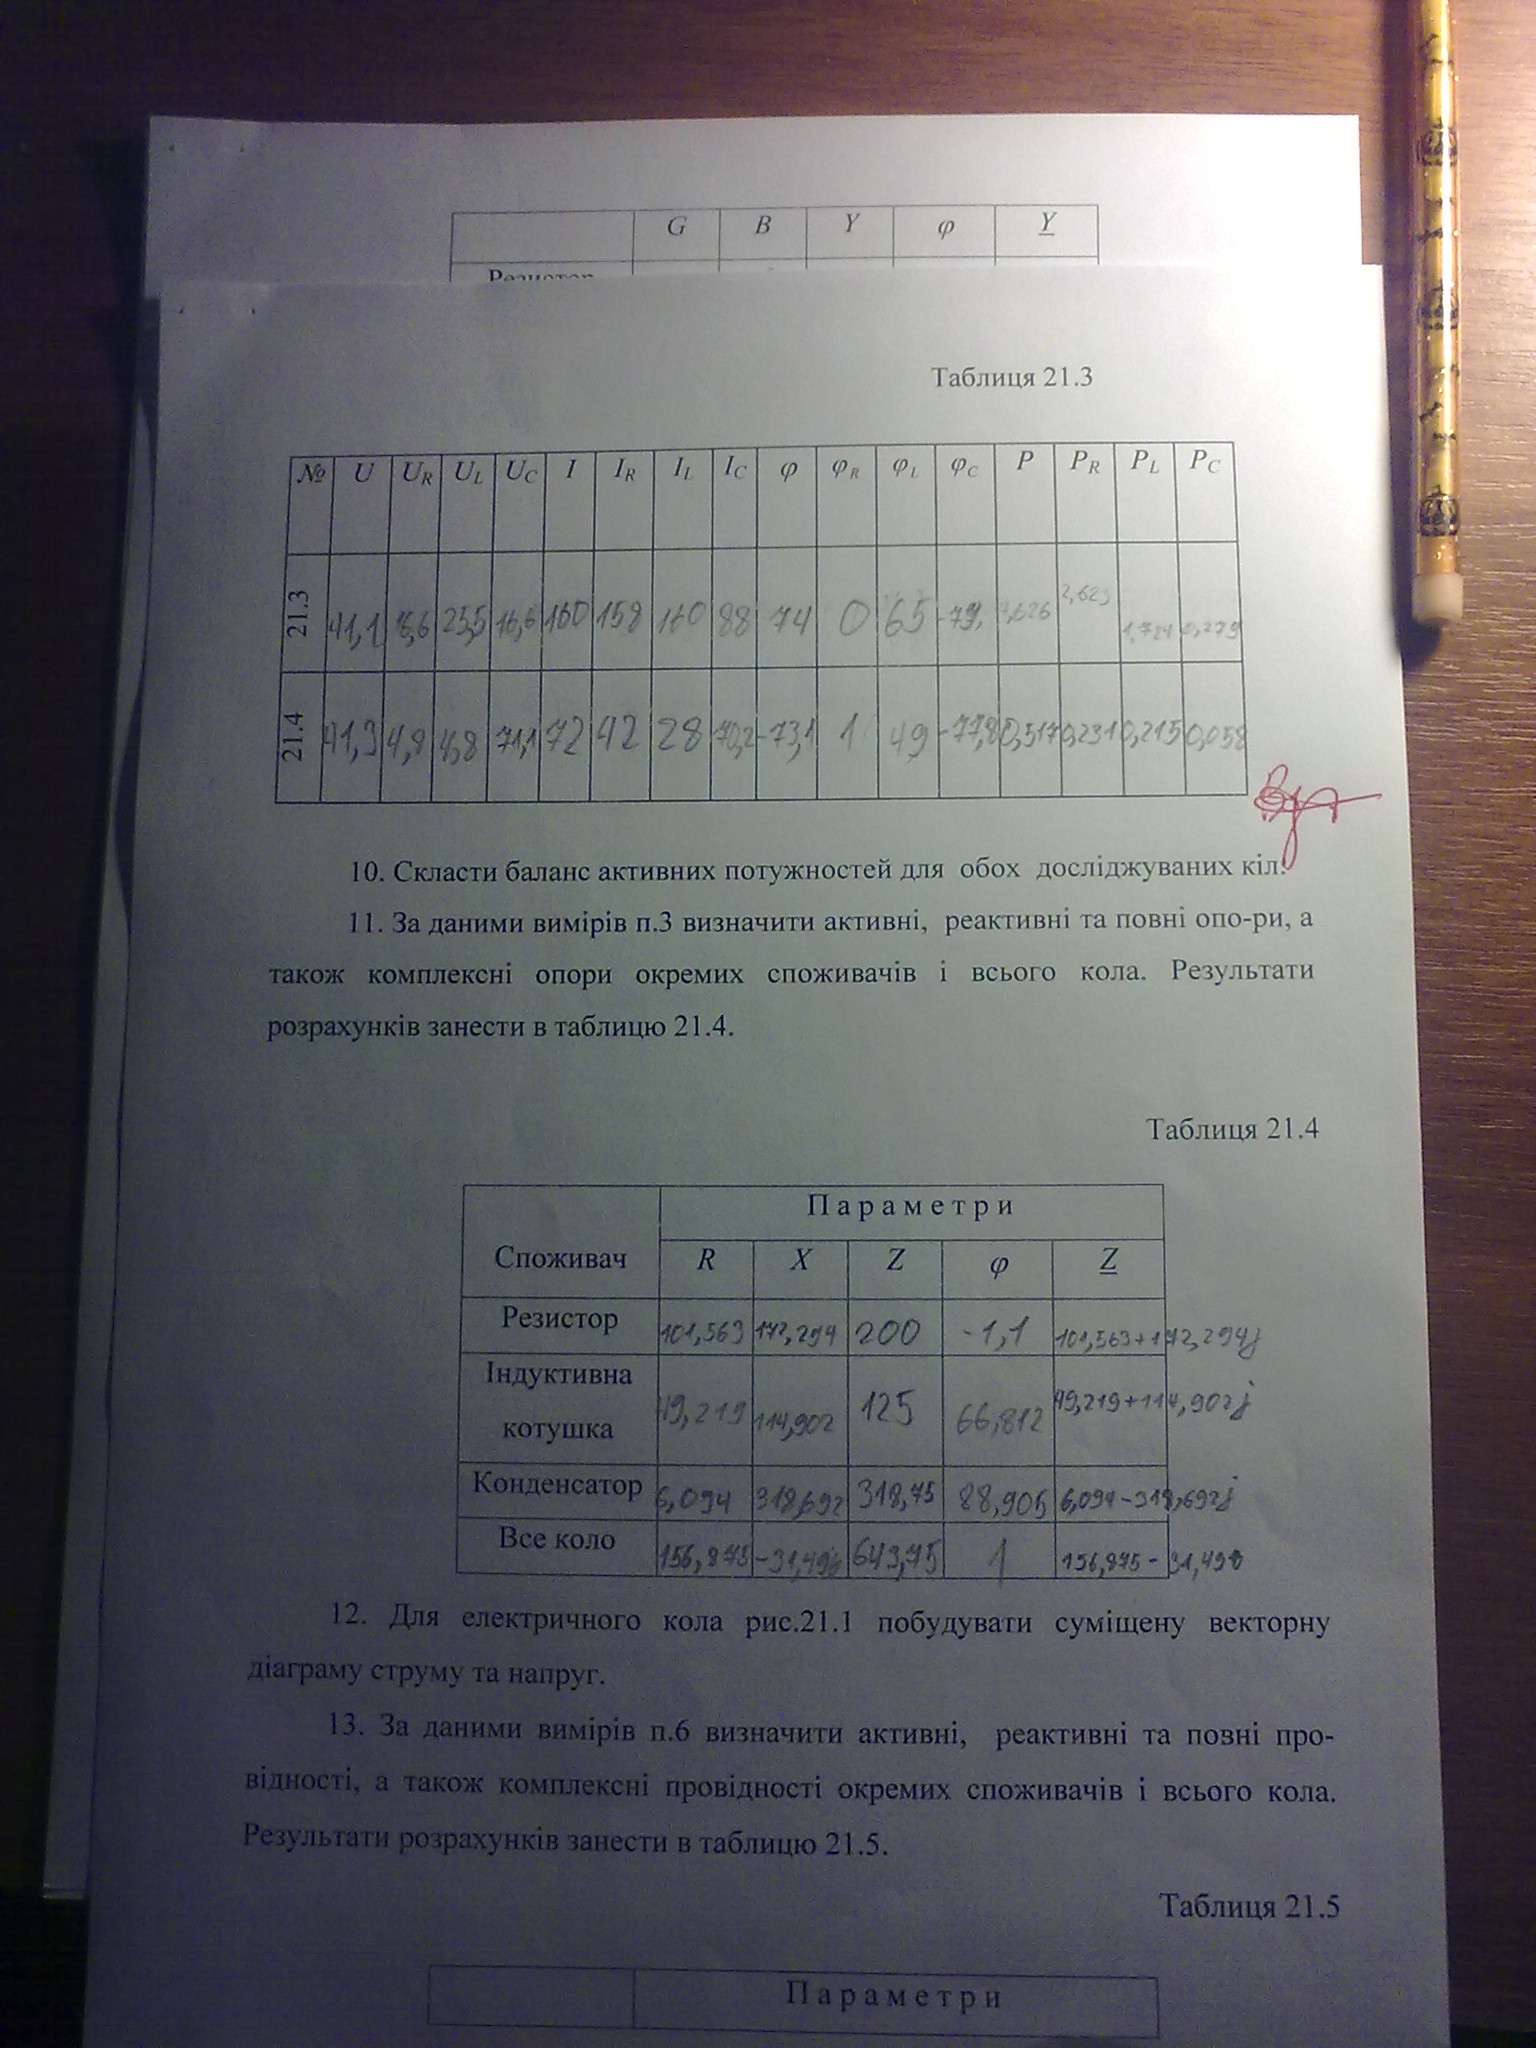 G B Y φ Y
Резистор
Таблиця 21.3
№ U U_R U_L U_C I I_R I_L I_C φ φ_R φ_L φ_C P P_R P_L P_C
21.3 41,1 23,5 16,6 160 158 160 88 74 0 65 -79, 2,623 1,724 0,279
21.4 41,3 4,8 4,8 71,1 72 42 28 70,2 -73,1 1 49 -77,8 0,517 0,231 0,215 0,058
10. Скласти баланс активних потужностей для обох досліджуваних кіл.
11. За даними вимірів п.3 визначити активні, реактивні та повні опо-ри, а
також комплексні опори окремих споживачів і всього кола. Результати
розрахунків занести в таблицю 21.4.
Таблиця 21.4
Параметри
Споживач R X Z φ Z
Резистор 101,563 172,294 200 -1,1 101,563+172,294j
Індуктивна
котушка 49,219 114,902 125 66,812 49,219+114,902j
Конденсатор 6,094 318,692 318,75 88,905 6,094-318,692j
Все коло 156,875 643,75 1 156,875-
12. Для електричного кола рис.21.1 побудувати суміщену векторну
діаграму струму та напруг.
13. За даними вимірів п.6 визначити активні, реактивні та повні про-
відності, а також комплексні провідності окремих споживачів і всього кола.
Результати розрахунків занести в таблицю 21.5.
Таблиця 21.5
Параметри